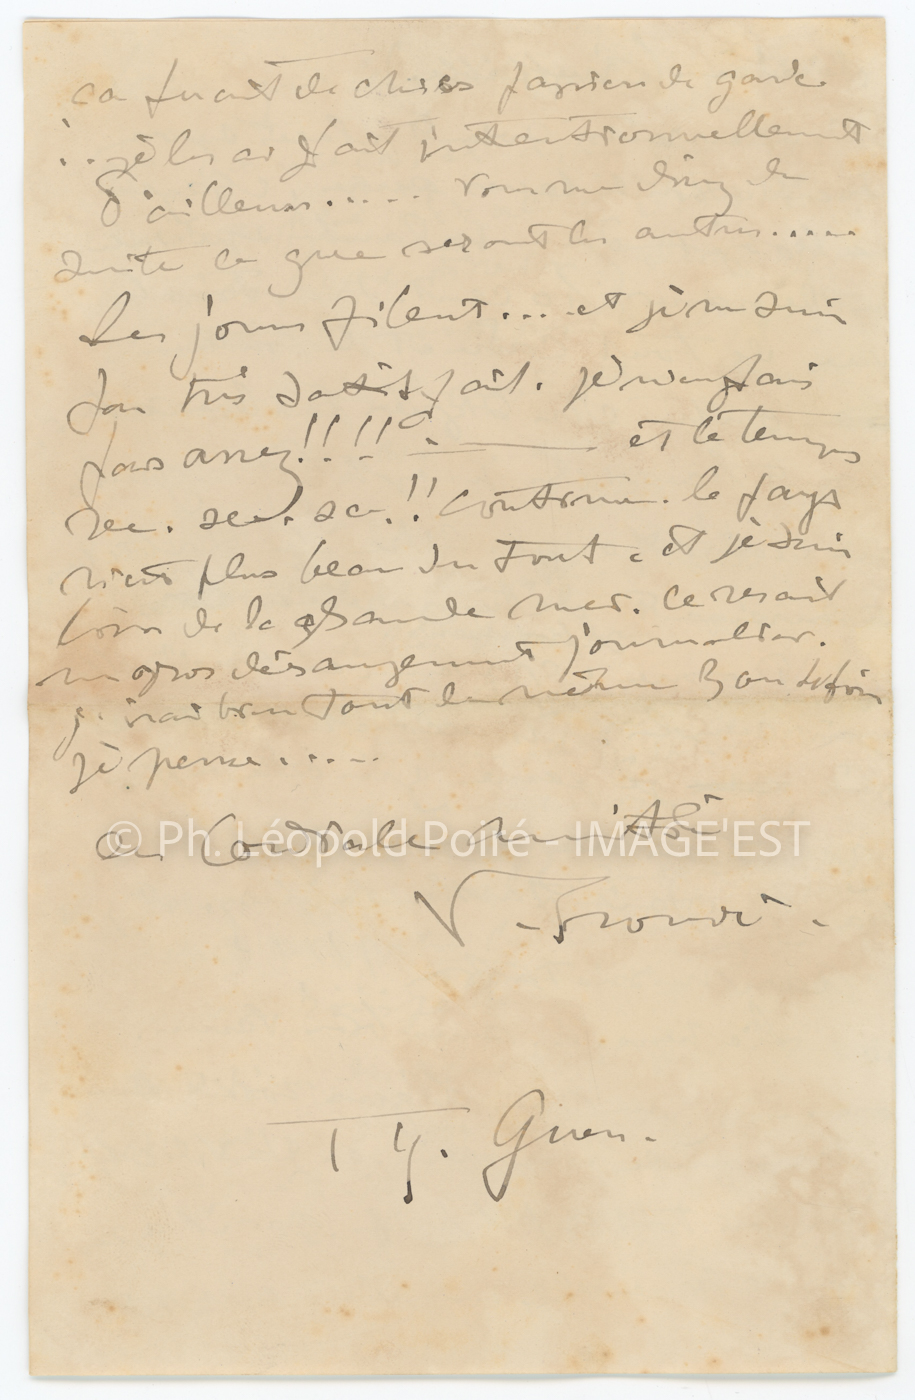 ça ferait de chics papiers de garde
... je les ai fait intentionnellement
d'ailleurs..... vous me direz de
suite ce que seront les autres.....
Les jours filent... et je ne suis
pas très satisfait. je n'en fais
pas assez!!!! et le temps
sec. sec. sec.!! continue. le pays
n'est plus beau du tout. et je suis
loin de la grande mer. ce serait
un gros dérangement journalier.
j'irai bien tout de même 3 ou 4 fois
je pense.....
© Ph. Léopold Poiré - IMAGE'EST
en Cordiale amitié
V. Prouvé.
Ty. Gwen.